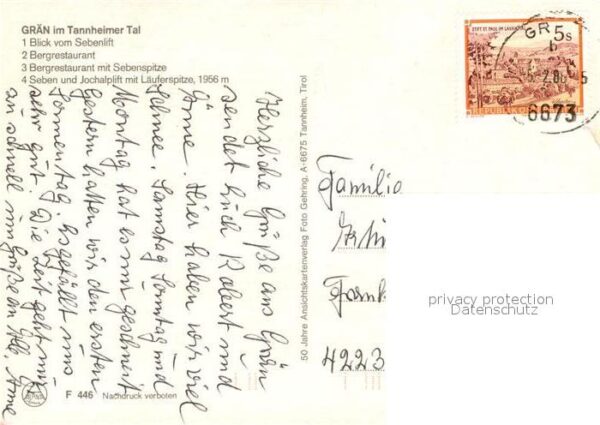 GRÄN im Tannheimer Tal
1 Blick vom Sebenlift
2 Bergrestaurant
3 Bergrestaurant mit Sebenspitze
4 Seben und Jochalplift mit Läuferspitze, 1956 m
Herzliche Grüße aus Grän
sendet Euch Robert und
Änne. Hier haben wir viel
Schnee. Samstag Sonntag und
Montag hat es nur geschneit
Gestern hatten wir den ersten
Sonnentag. Es gefällt uns
sehr gut. Die Zeit geht nur
zu schnell um Grüße an Alle, Änne
50 Jahre Ansichtskartenverlag Foto Gehring, A-6675 Tannheim, Tirol
F 446 Nachdruck verboten
STIFT ST. PAUL IM LAVANTTAL
5s
REPUBLIK
GR
b
2.86
5
6673
Familie
4223
privacy protection
Datenschutz